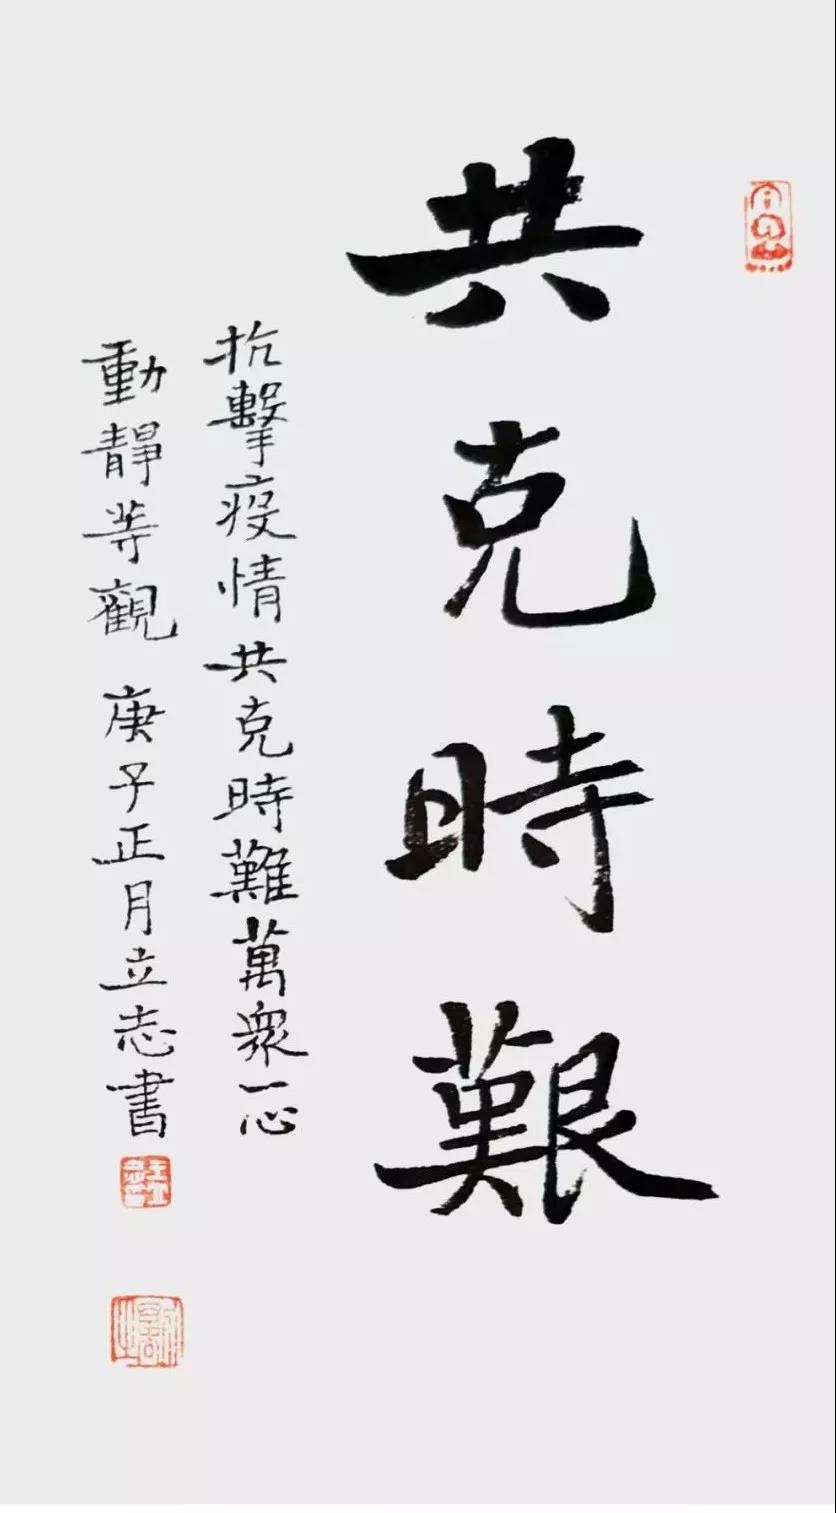 共克時艱
抗擊疫情共克時難萬眾一心
動靜等觀 庚子正月立志書